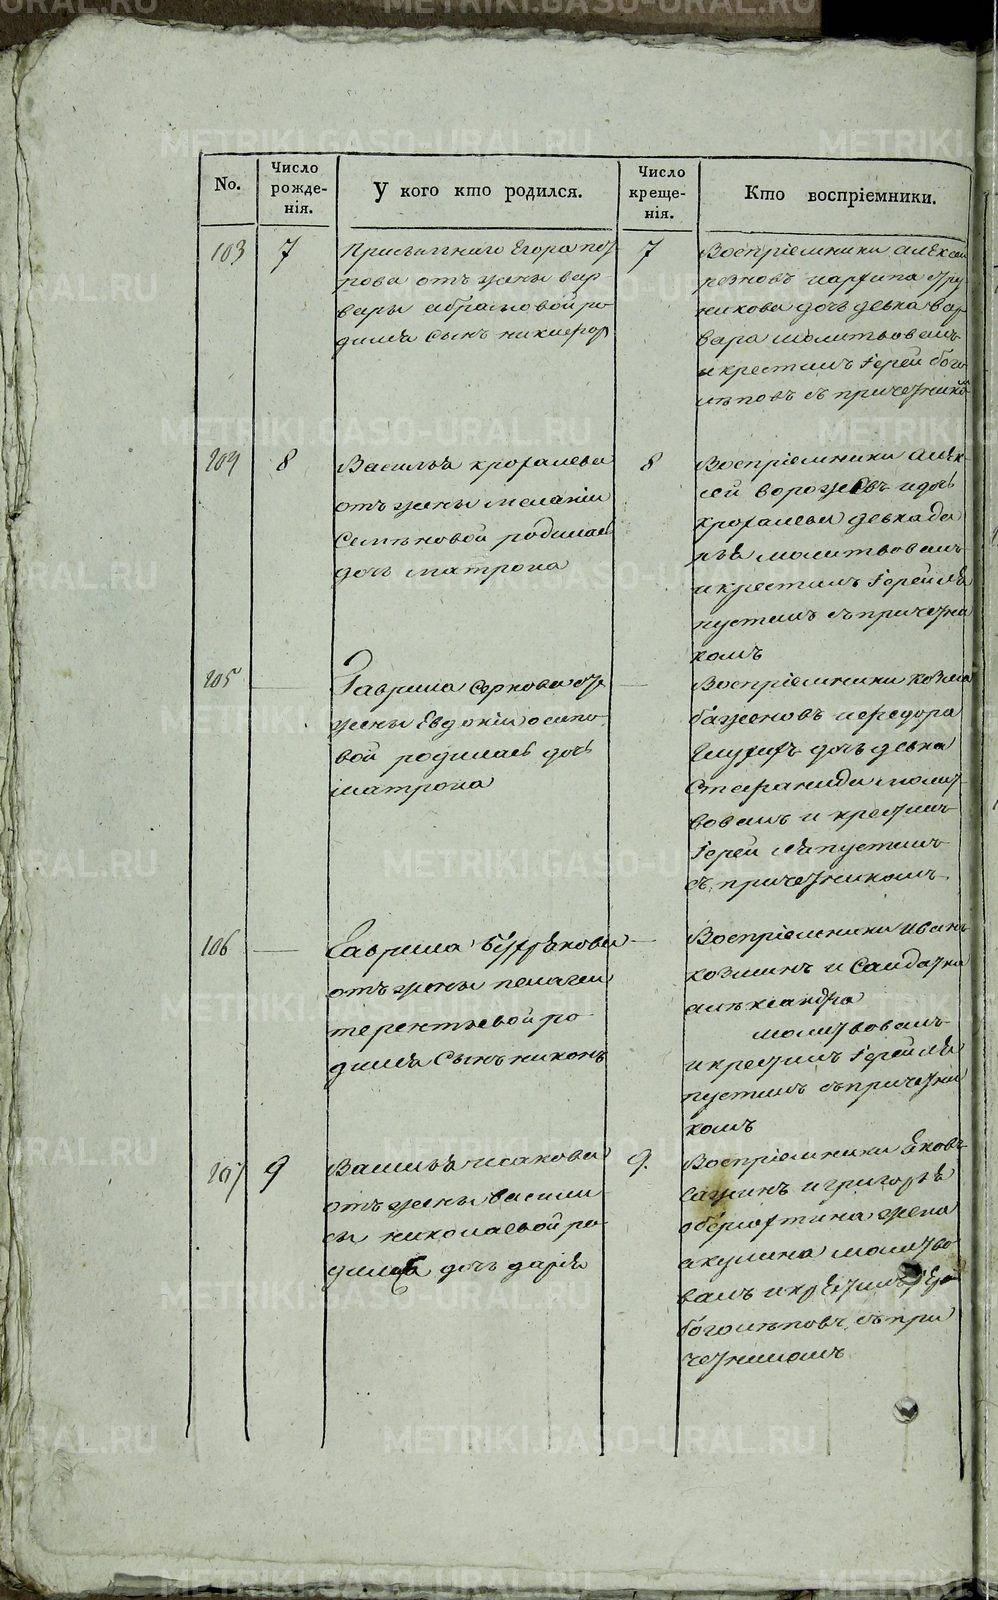 METRIKI.GASO-URAL.RU
No.
Число рожде-нія.
У кого кто родился.
Число креще-нія.
Кто воспріемники.
103
7
Егора пет
рова отъ жены вар
вары абрамовой ро
дился сынъ никифор
7
Воспріемники алексей
дочь девка вар
вара молитвовалъ
и крестилъ Іерей бого
леповъ съ причетнико
104
8
Василья
отъ жены меланіи
Семеновой родилась
дочь матрона
8
Воспріемники алек
сей и дочь
девка да
рья молитвовалъ
и крестилъ Іерей ла
пустинъ съ причетни
комъ
105
Гаврила от
жены Евдокіи осипо
вой родилась дочь
матрона
Воспріемники козма
баженовъ и федора
дочь девка
Стефанида молит
вовалъ и крестилъ
Іерей лапустинъ
съ причетникомъ
106
Гаврила
отъ жены пелагеи
терентьевой ро
дился Сынъ никонъ
Воспріемники иванъ
козминъ и Салдатка
александра
молитвовалъ
и крестилъ Іерей ла
пустинъ съ причетни
комъ
107
9
Василья исакова
отъ жены васили
сы николаевой ро
дилась дочь дарья
9.
Воспріемники Яковъ
и григорья
жена
акулина молитво
валъ и крестилъ Іерей
боголеповъ съ при
четникомъ